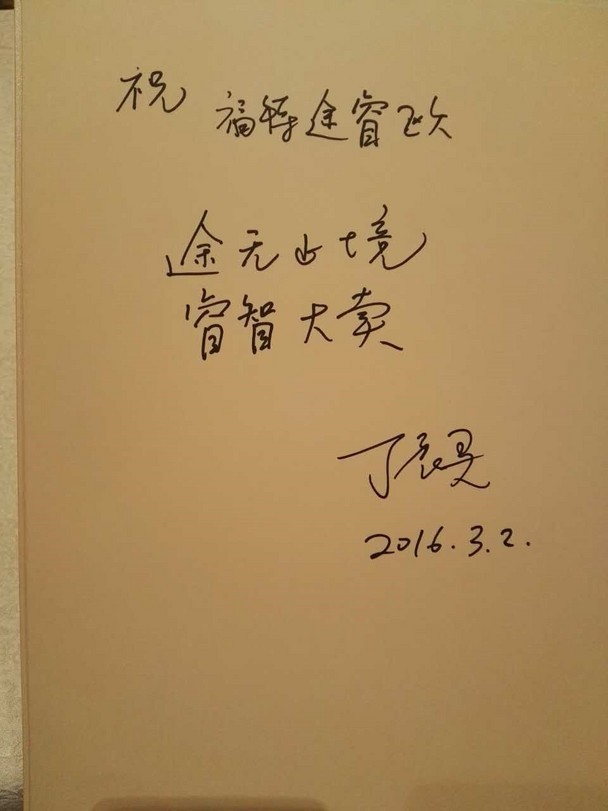 祝 福特途睿欧
途无止境
睿智大卖
丁
2016.3.2.